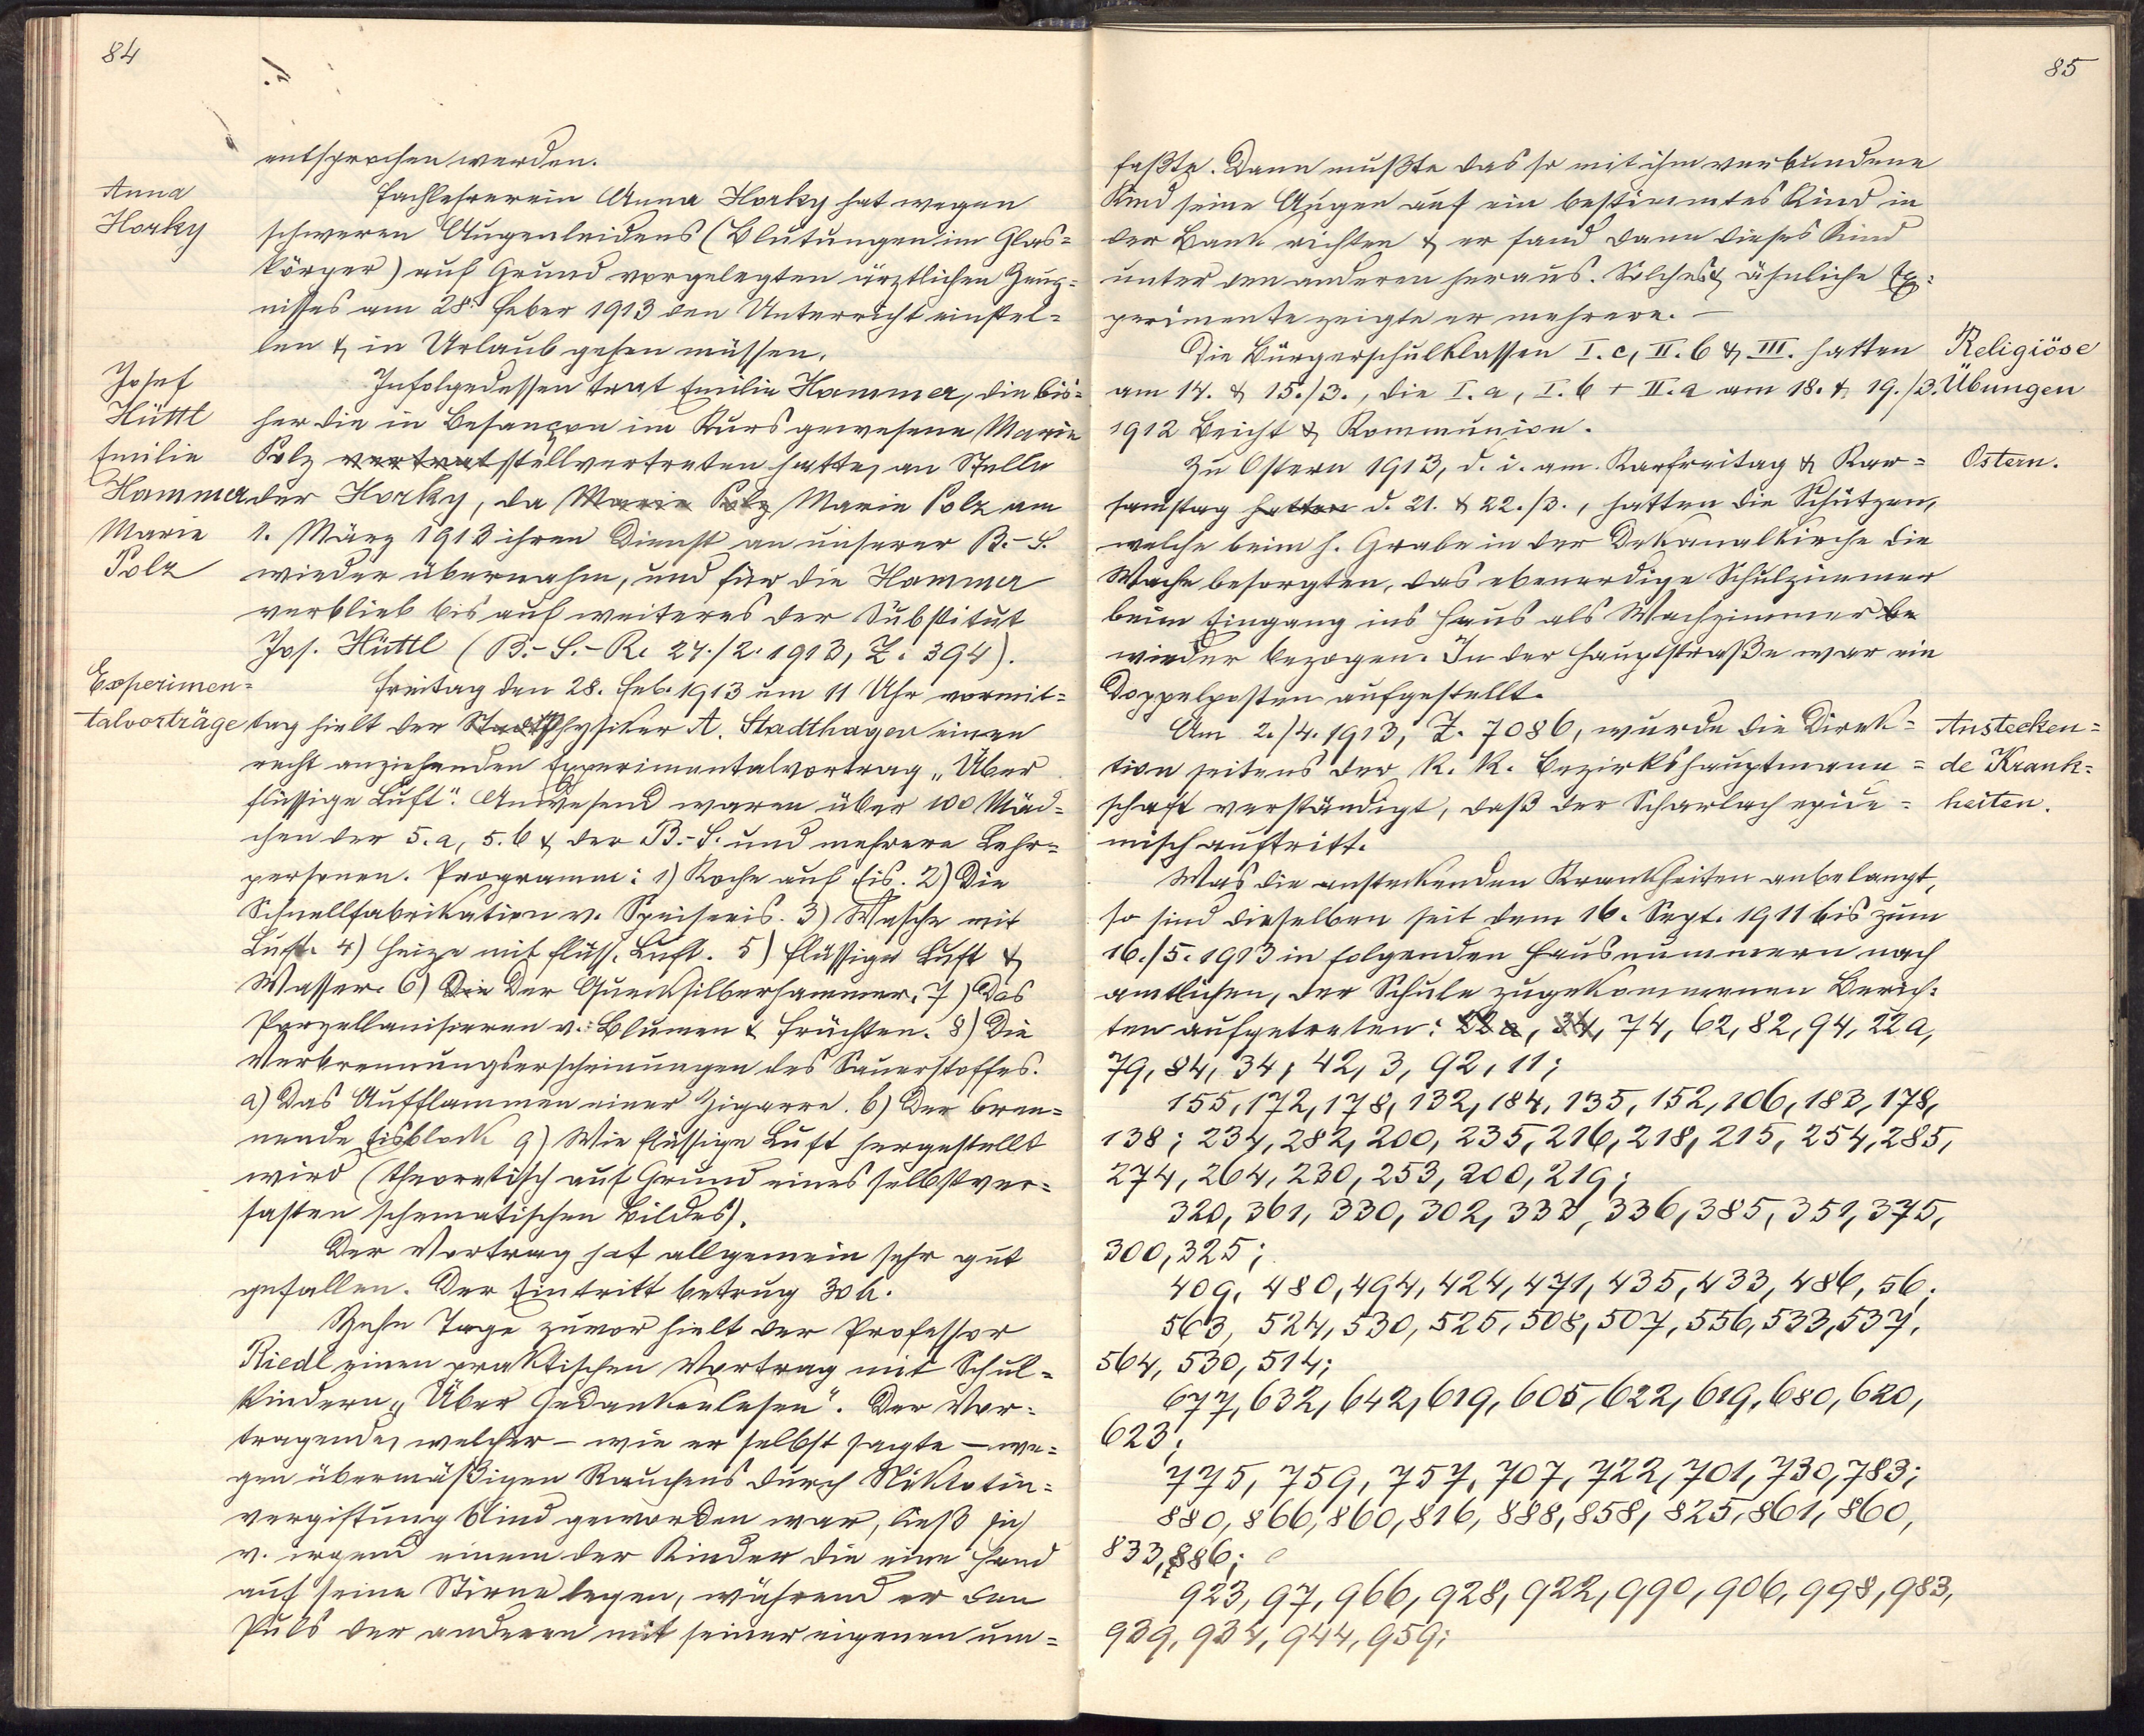 84
entsprochen werden.
Anna
Horky
Fachlehrerein Anna Horky hat wegen
schweren Augenleidens (Blutungen im Glas=
körper) auf Grund vorgelegten ärztlichen Zeug=
nisses am 28. Feber 1913 den Unterricht einstel=
len & in Urlaub gehen müssen.
Josef
Hüttl
Emilie
Hammer
Marie
Polz
Infolgedessen trat Emilie Hammer, die bis=
her die in Besançon im Kurs gewesene Marie
Polz vertrat stellvertreten hatte, an Stelle
der Horky, da Marie Polz Marie Polz am
1. März 1913 ihren Dienst an unserer B.-S.
wieder übernahm, und für die Hammer
verblieb bis auf weiteres der Substitut
Jos. Hüttl (B.-S.-R. 24./2. 1913, Z. 394).
Experimen=
talvorträge
Freitag den 28. Feb. 1913 um 11 Uhr vormit=
tag hielt der Physiker A. Stadthagen einen
recht anziehenden Experimentalvortrag „Über
flüssige Luft". Anwesend waren über 100 Mäd=
chen der 5. a, 5. b & der B.-S. und mehrere Lehr=
personen. Programm: 1) Koche auf Eis. 2) Die
Schnellfabrikation v. Speiseeis. 3) Wasche mit
Luft. 4) Heize mit flüss. Luft. 5) Flüssige Luft &
Wasser. 6) Die Der Quecksilberhammer. 7) Das
Porzellanisieren v. Blumen & Früchten. 8) Die
Verbrennungserscheinungen des Sauerstoffes.
a) Das Aufflammen einer Zigarre. b) Der bren=
nende Eisblock 9) Wie flüssige Luft hergestellt
wird (theoretisch auf Grund eines selbstver=
fasten schematischen Bildes).
Der Vortrag hat allgemein sehr gut
gefallen. Der Eintritt betrug 30 h.
Zehn Tage zuvor hielt der Professor
Riedl einen praktischen Vortrag mit Schul=
kindern „Über Gedankenlesen". Der Vor=
tragende, welcher – wie er selbst sagte – we=
gen übermäßigen Rauchens durch Nikotin=
vergiftung blind geworden war, ließ sich
v. irgend einem der Kinder die eine Hand
auf seine Stirne legen, während er den
Puls der anderen mit seiner eigenen um=
85
faßte. Dann mußte das so mit ihm verbundene
Kind seine Augen auf ein bestimmtes Kind in
der Bank richten & er fand dann dieses Kind
unter den anderen heraus. Solches & ähnliche Ex=
perimente zeigte er mehrere. –
Religiöse
Übungen
Die Bürgerschulklassen I. c, II. b & III. hatten
am 14. & 15./3., die I. a, I. b + II. a am 18. & 19./3.
1912 Beicht & Kommunion.
Ostern.
Zu Ostern 1913, d. i. am Karfreitag & Kar=
samstag hatten d. 21. & 22./3., hatten die Schützen,
welche beim h. Grabe in der Dekanalkirche die
Wache besorgten, das ebenerdige Schulzimmer
beim Eingang ins Haus als Wachzimmer be
wieder bezogen. In der Hauptstraße war ein
Doppelposten aufgestellt.
Anstecken=
de Krank=
heiten.
Am 2./4. 1913, Z. 7086, wurde die Direk=
tion seitens der K. K. Bezirkshauptmann=
schaft verständigt, daß der Scharlach epide=
misch auftritt.
Was die ansteckenden Krankheiten anbelangt,
so sind dieselben seit dem 16. Sept. 1911 bis zum
16./5. 1913 in folgenden Hausnummern nach
amtlichen, der Schule zugekommenen Berich=
ten aufgetreten: 22 a, 34, 74, 62, 82, 94, 22 a,
79, 84, 34, 42, 3, 92, 11;
155, 172, 178, 132, 184, 135, 152, 106, 183, 178,
138; 234, 282, 200, 235, 216, 218, 215, 254, 285,
274, 264, 230, 253, 200, 219;
320, 361, 330, 302, 333, 336, 385, 351, 375,
300, 325;
409, 480, 494, 424, 471, 435, 433, 486, 56;
563, 524, 530, 525, 508, 507, 556, 533, 537,
564, 530, 514;
677, 632, 642, 619, 605, 622, 619, 680, 620,
623;
775, 759, 757, 707, 722, 701, 730, 783;
880, 866, 860, 816, 888, 858, 825, 861, 860,
833, 886;
923, 97, 966, 928, 922, 990, 906, 998, 983,
939, 934, 944, 959;